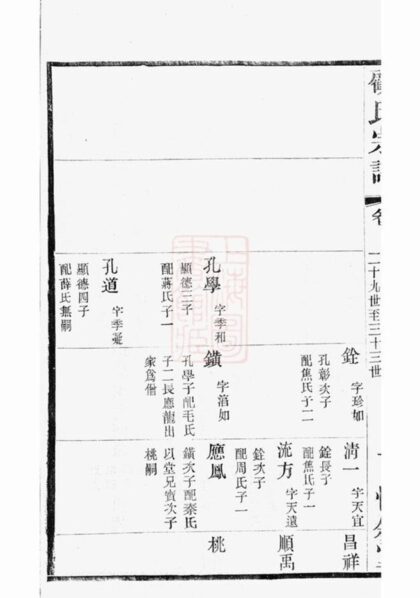 氏宗譜
卷
二十九世至三十三世
孔學 字季和
顯德三子
配蔣氏子一
孔道 字季凝
顯德四子
配薛氏無嗣
銓 字珍如
孔彰次子
配焦氏子二
鐄 字滄如
孔學子配毛氏
子二長應龍出
家爲僧
清一 字天宜
銓長子
配焦氏子一
流方 字天遠
銓次子
配周氏子一
應鳳
鐄次子配秦氏
以堂兄賓次子
桃嗣
昌祥
順禹
桃